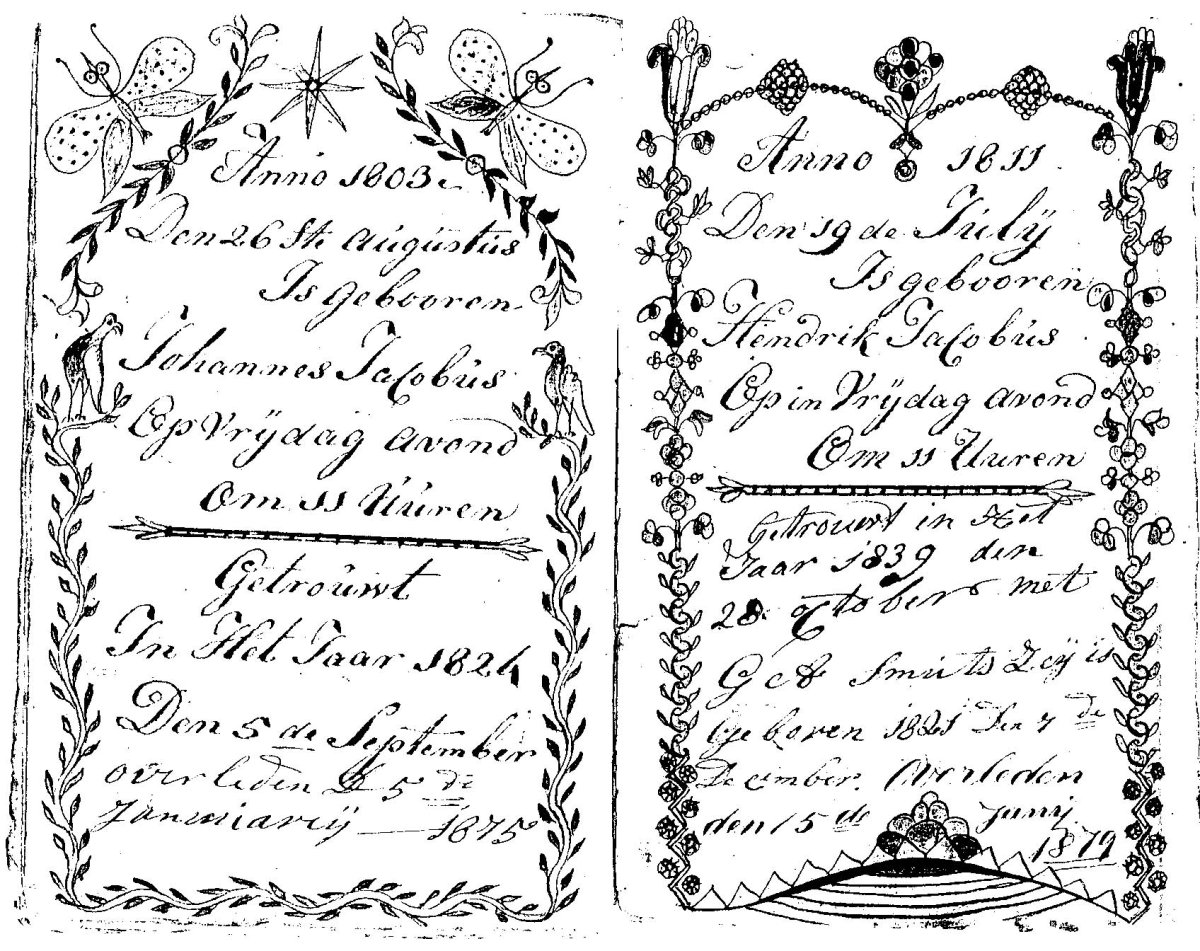 Anno 1803
Den 26 Ste augustus
Is gebooren
Johannes Jacobus
Op Vrÿdag avond
Om 11 Uuren
Getrouwt
In Het Jaar 1824
Den 5 de September
overleden d 5 de
Januwiarÿ — 1875
Anno 1811
Den 19 de Julÿ
Is gebooren
Hendrik Jacobus
Op in Vrÿdag avond
Om 11 Uuren
Getrouwt in Het
Jaar 1839 den
28 October met
Smuts Zeÿ is
Geboren 1821 den 7 de
December. Overleden
den 15 de Junÿ
1879